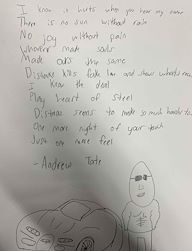 I know it hurts when you hear my name
There is no sun without rain
No joy without pain
Whoever made souls
Made ours the same
Distance kills fake love and shows what's real
I know the deal
Play heart of steel
Distance seems to make so much harder to
One more night of your touch
Just one more feel
- Andrew Tate